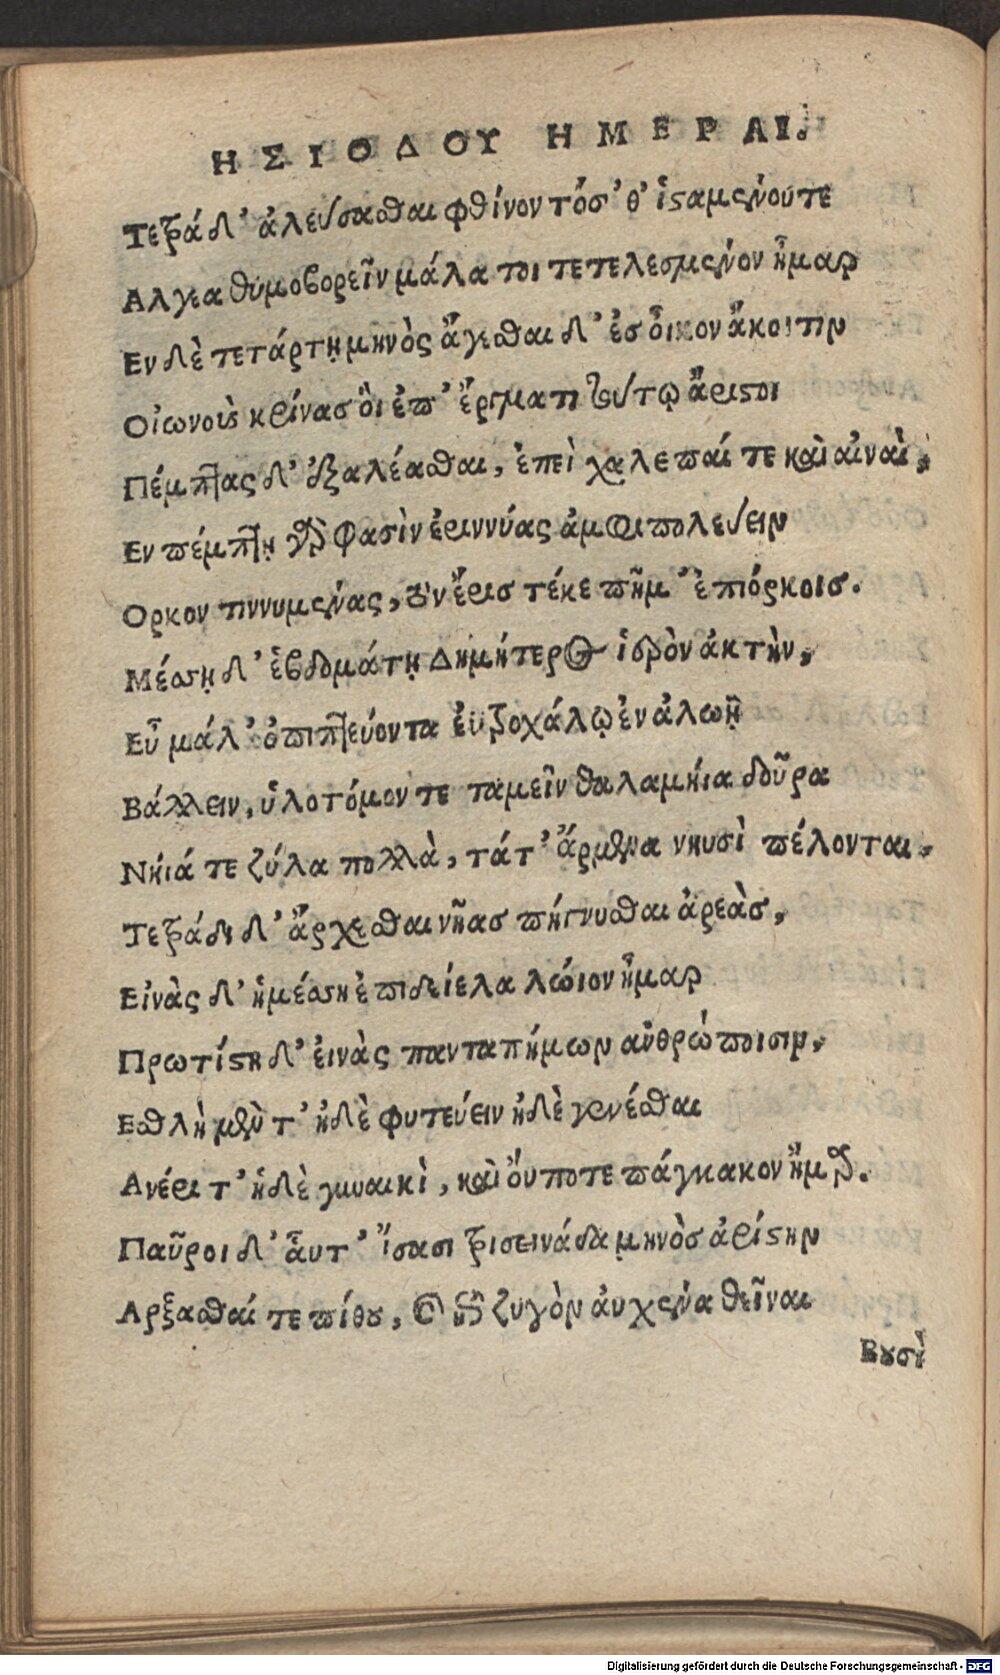 ΗΣΙΟΔΟΥ ΗΜΕΡΑΙ.
Τετράδ' ἀλεύσασθαι φθίνοντόσ' θ' ἱσαμένουτε
Αλγεα θύμοβορεῖν μάλα τοι τετελεσμένον ἦμαρ
Εν δὲ τετάρτῃ μηνὸς ἄγεσθαι δ' ἐσ οἶκον ἄκοιτιν
Οἰωνοὺς κρίνασ ὃι ἐπ' ἔργματι τούτῳ ἄριστοι
Πέμπτας δ' ἐξαλέασθαι, ἐπεὶ χαλεπαί τε καὶ αἰναὶ,
Εν πέμπτῃ γὰρ φασὶν ἐριννύας ἀμφιπολεύειν
Ορκον τιννυμένας, ὃν ἔρισ τέκε πῆμ' ἐπιόρκοισ.
Μέσσῃ δ' ἑβδομάτῃ Δημήτερος ἱερὸν ἀκτὴν,
Εὖ μάλ' ὀπιπτεύοντα ἐϋτροχάλῳ ἐν ἀλωῇ
Βάλλειν, ὑλοτόμον τε ταμεῖν θαλαμήια δοῦρα
Νήιά τε ζύλα πολλὰ, τάτ' ἄρμενα νηυσὶ πέλονται,
Τετράδι δ' ἄρχεσθαι νῆασ πήγνυσθαι ἀρεὰσ,
Εἰνὰς δ' ἡμέσση ἐπιδείελα λωίον ἦμαρ
Πρωτίστη δ' ἐινὰς πανταπήμων ἀνθρώποισιν,
Εσθλὴ μὲν τ' ἠδὲ φυτεύειν ἠδὲ γενέσθαι
Ανέρι τ' ἠδὲ γυναικὶ, καὶ ὄυποτε πάγκακον ἦμαρ.
Παῦροι δ' ἆυτ' ἴσασι τρισεινάδα μηνὸσ ἀρίστην
Αρξασθαί τε πίθου, καὶ ἐπὶ ζυγὸν ἀυχένα θεῖναι
Βουσὶ
Digitalisierung gefördert durch die Deutsche Forschungsgemeinschaft - DFG